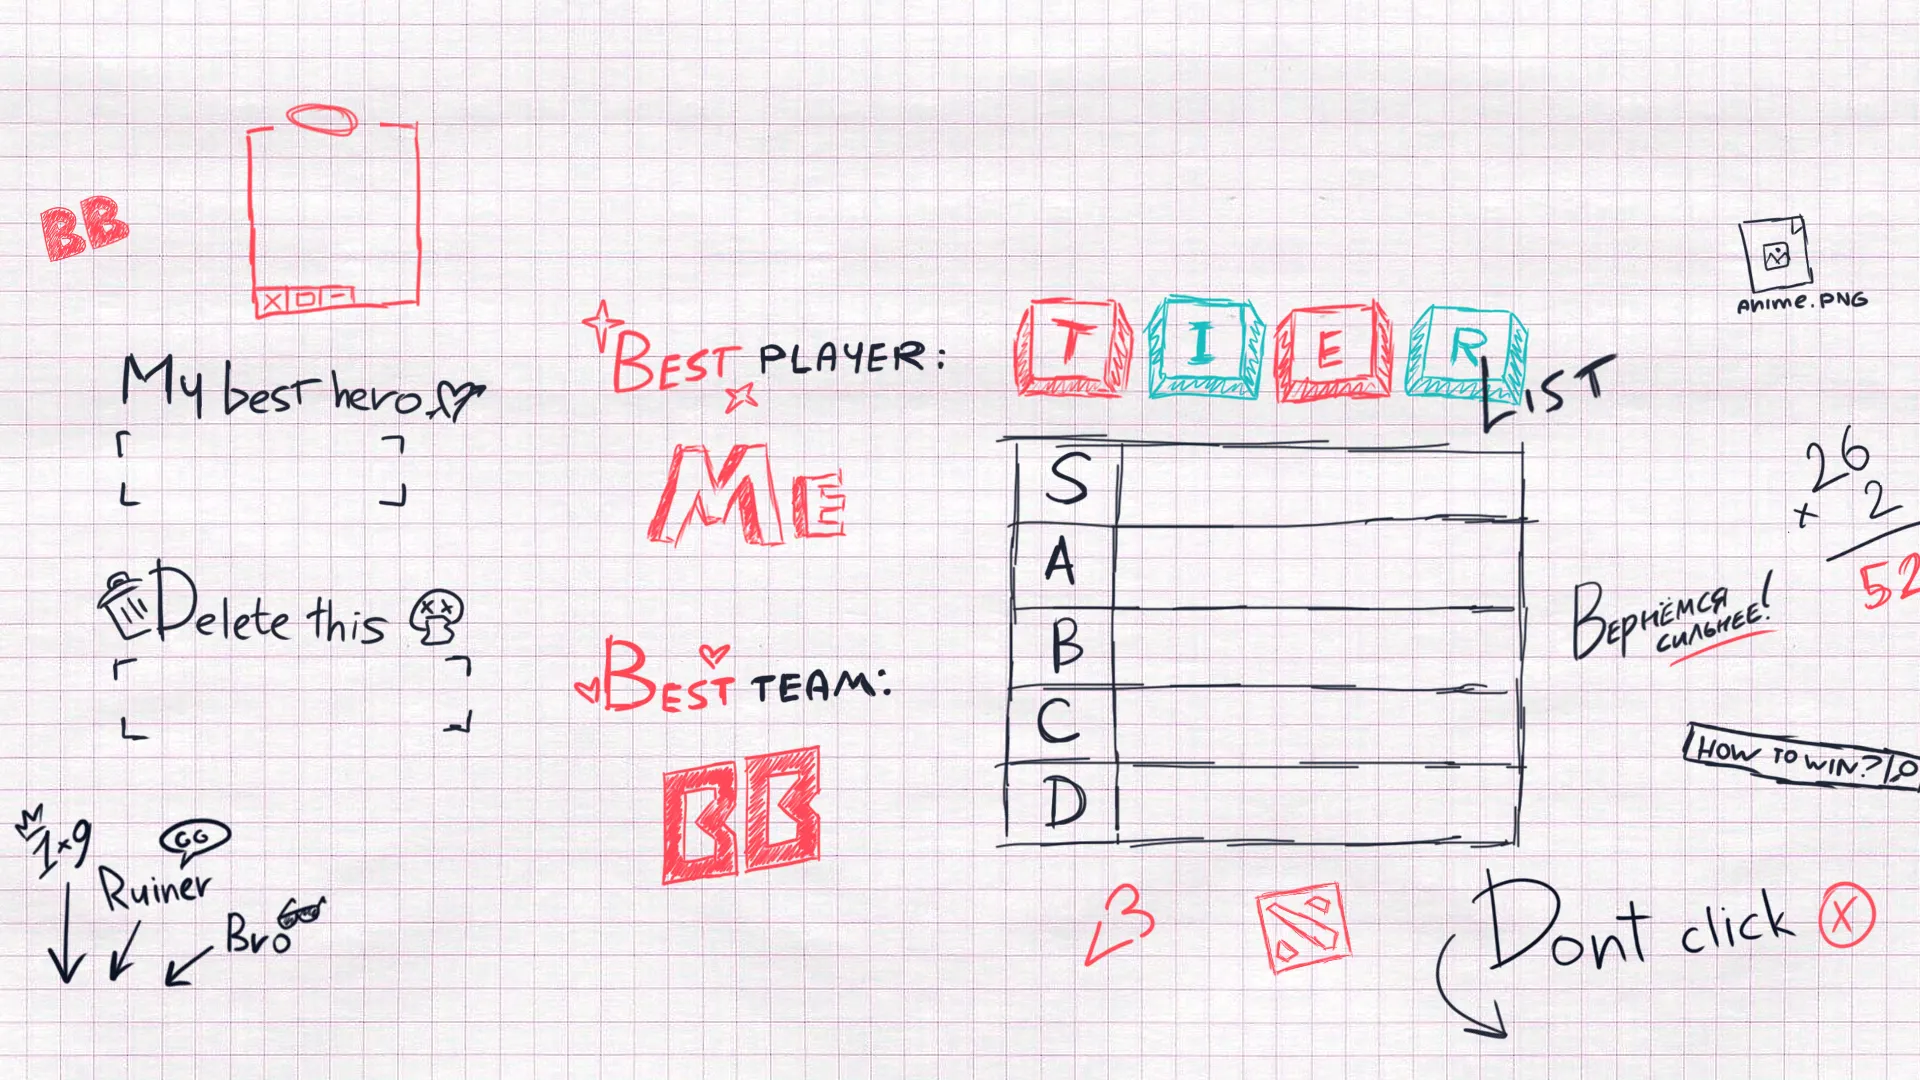 BB
My best hero
Delete this
1x9
GG
Ruiner
Bro
BEST PLAYER:
ME
BEST TEAM:
BB
TIER
LIST
S
A
B
C
D
Anime.PNG
26
x 2
52
ВЕРНЁМСЯ
СИЛЬНЕЕ!
HOW TO WIN?
Dont click X